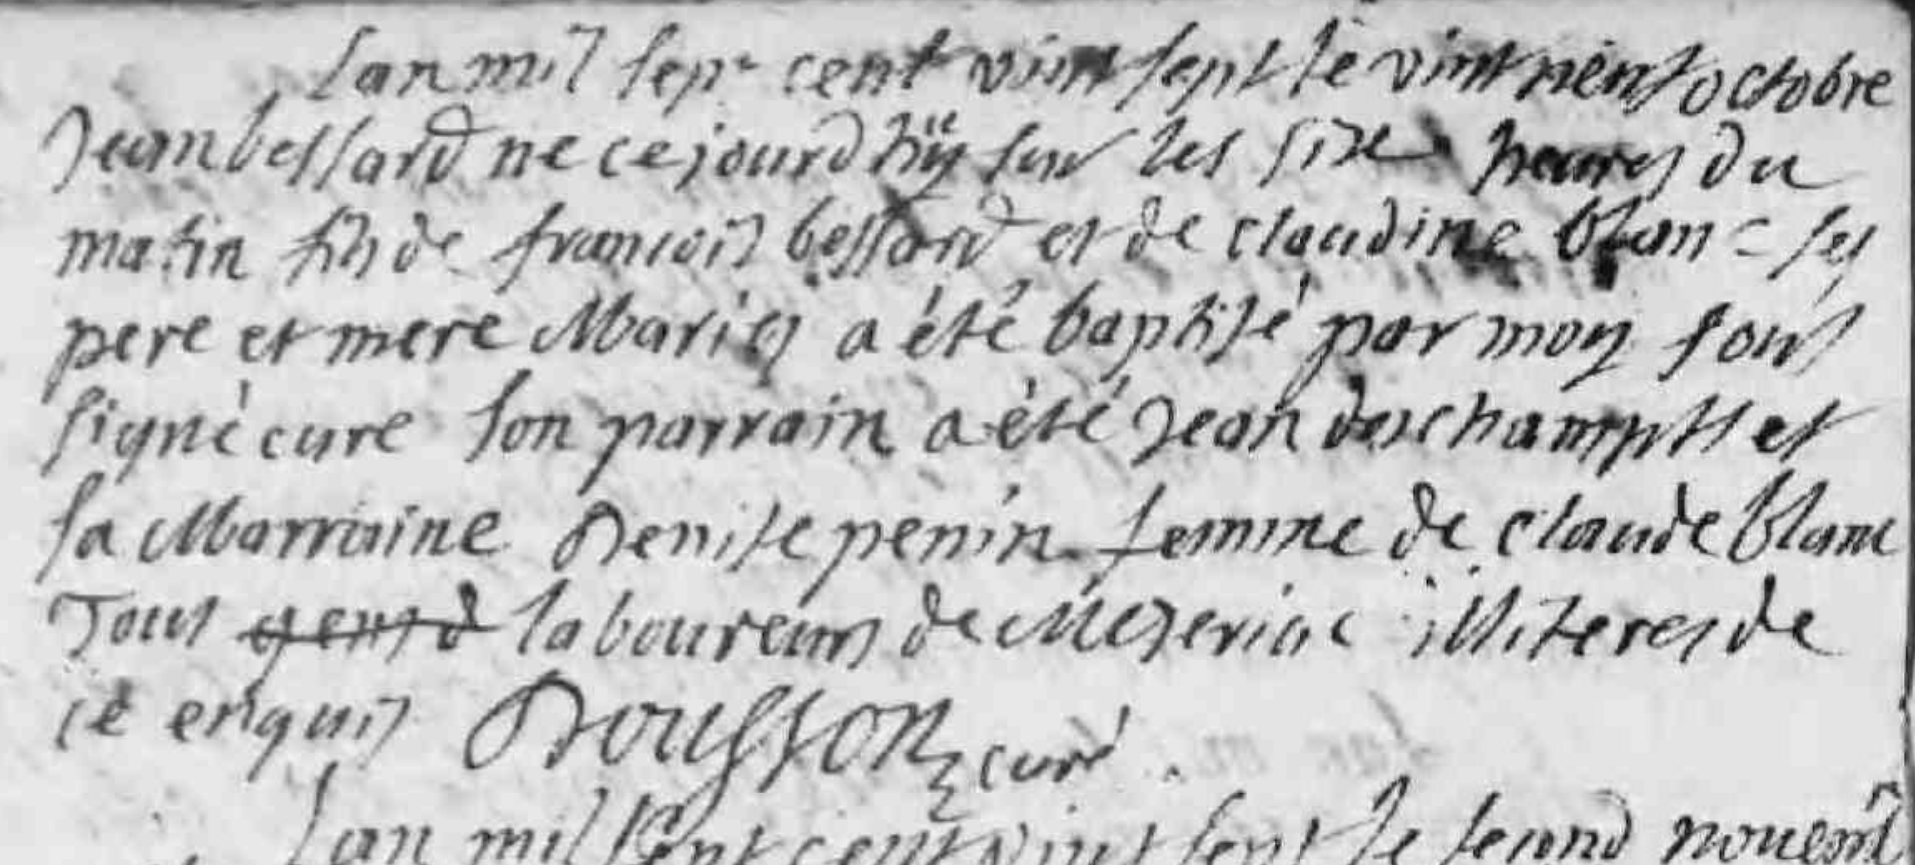 Lan mil sept cent vint sept le vint neuf octobre
Jean bessard ne ce jourd huy sur les size heures du
matin fils de francois bessard et de claudine blanc ses
pere et mere Maries a été baptisé par moy sous
signé curé son parrain a été Jean deschampts et
sa Marraine Denise penin femme de claude blanc
Tous laboureurs de Mezeriac illiteres de
ce enquis Dousson curé
Lan mil sept cent vint sept le second novem